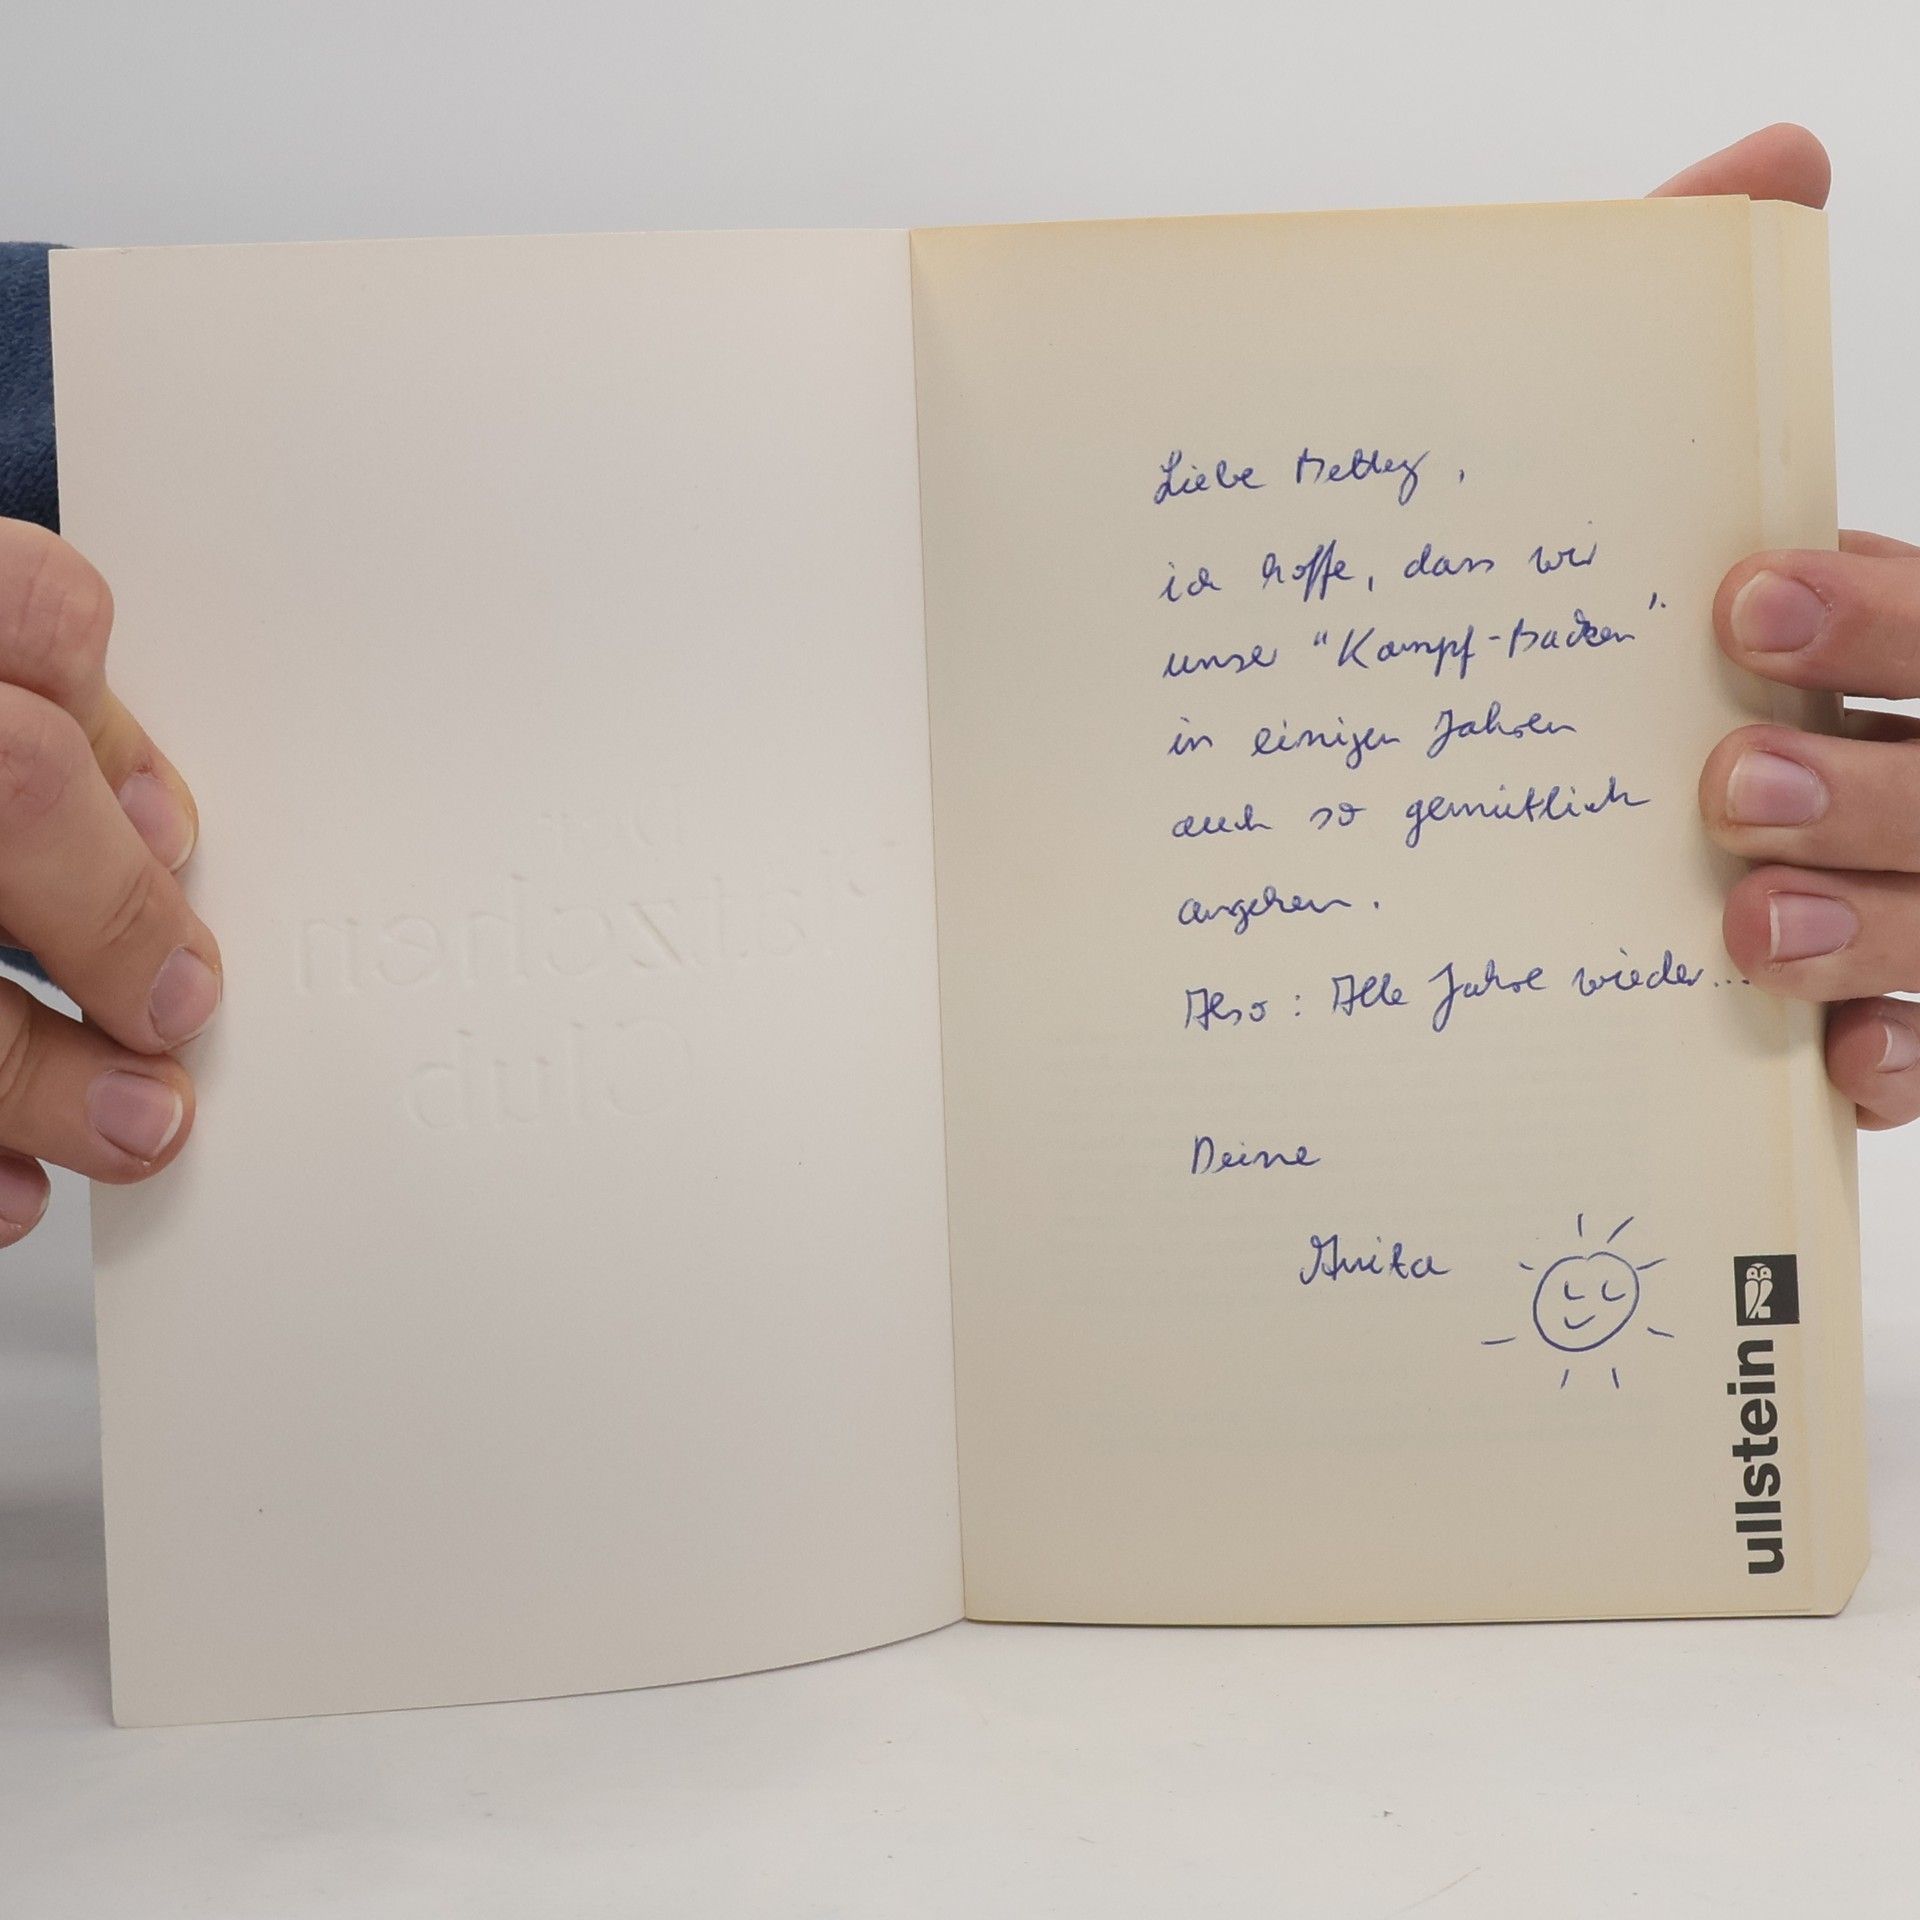 Der
Plätzchen
Club
Liebe
ich hoffe, dass wir
unser "Kampf-Backen"
in einigen Jahren
auch so gemütlich
angehen.
Also: Alle Jahre wieder...
Deine
Anita
ullstein